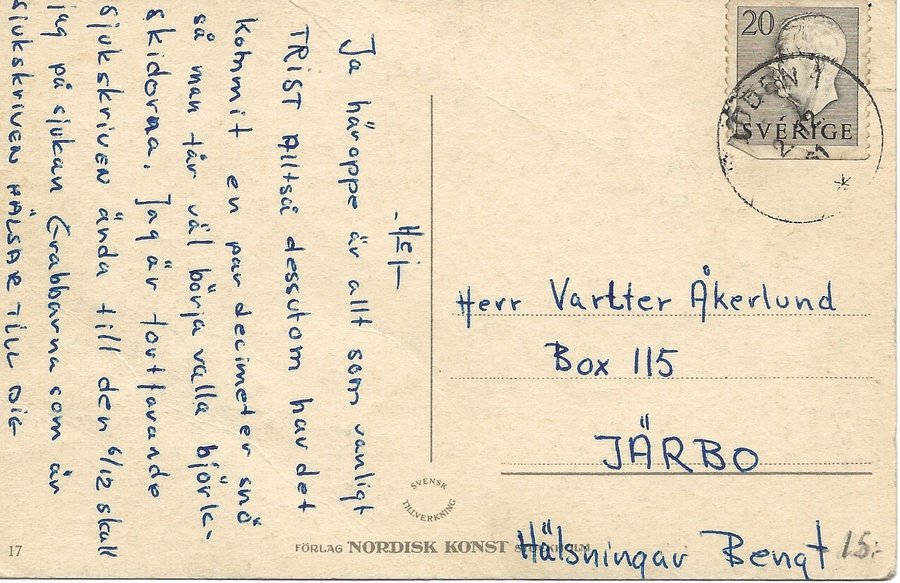 - Hej -
Ja häroppe är allt som vanligt
TRIST Alltså dessutom har det
kommit en par decimeter snö
så man får väl börja valla björk-
skidorna. Jag är fortfarande
sjukskriven ända till den 6/12 skall
jag på sjukan Grabbarna som är
sjukskriven HÄLSAR TILL DIG
20
SVERIGE
Herr Vartter Åkerlund
Box 115
JÄRBO
Hälsningar Bengt
15:-
SVENSK
TILLVERKNING
17
FÖRLAG NORDISK KONST STOCKHOLM